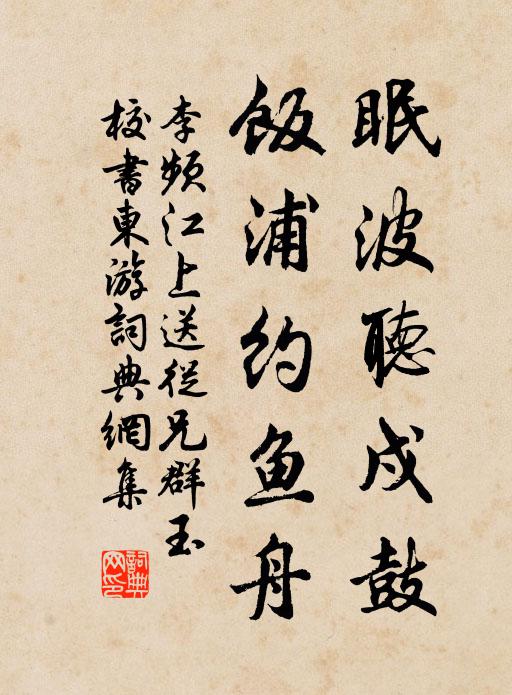 眠波聽戍鼓
飯浦約鱼舟
李频江上送從兄群玉
校書東游詞典網集
詞典网印